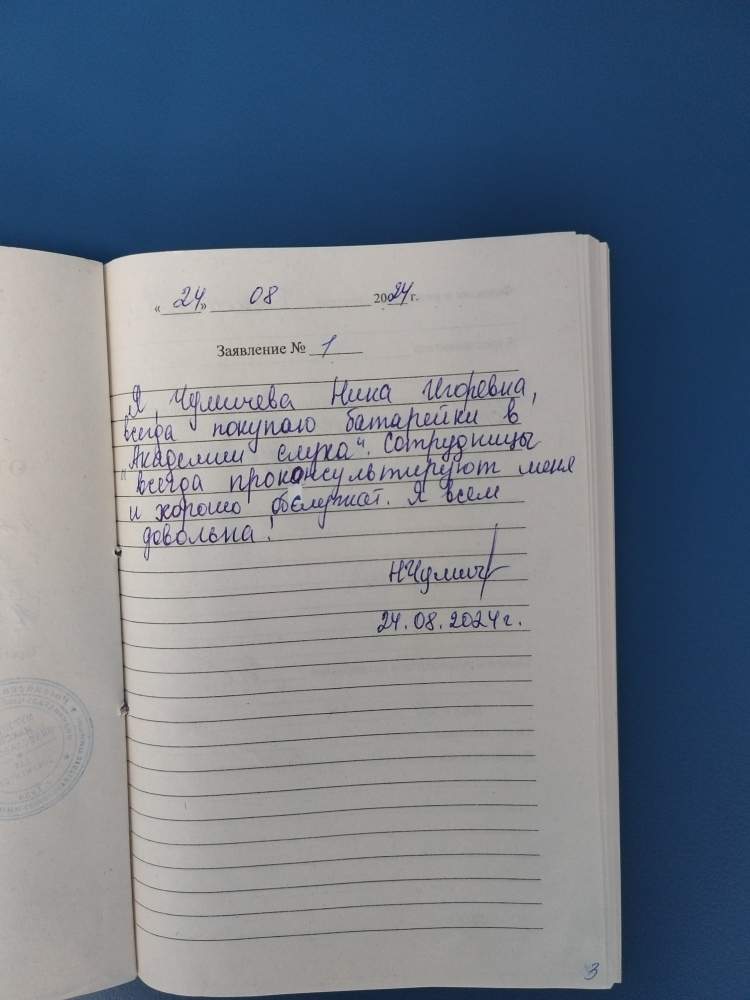 « 24 » 08 2024 г.
Заявление № 1
Я, Чуличева Нина Игоревна,
всегда покупаю батарейки в
"Академии слуха". Сотрудницы
всегда проконсультируют меня
и хорошо обслужат. Я всем
довольна!
НЧулич
24.08.2024г.
3